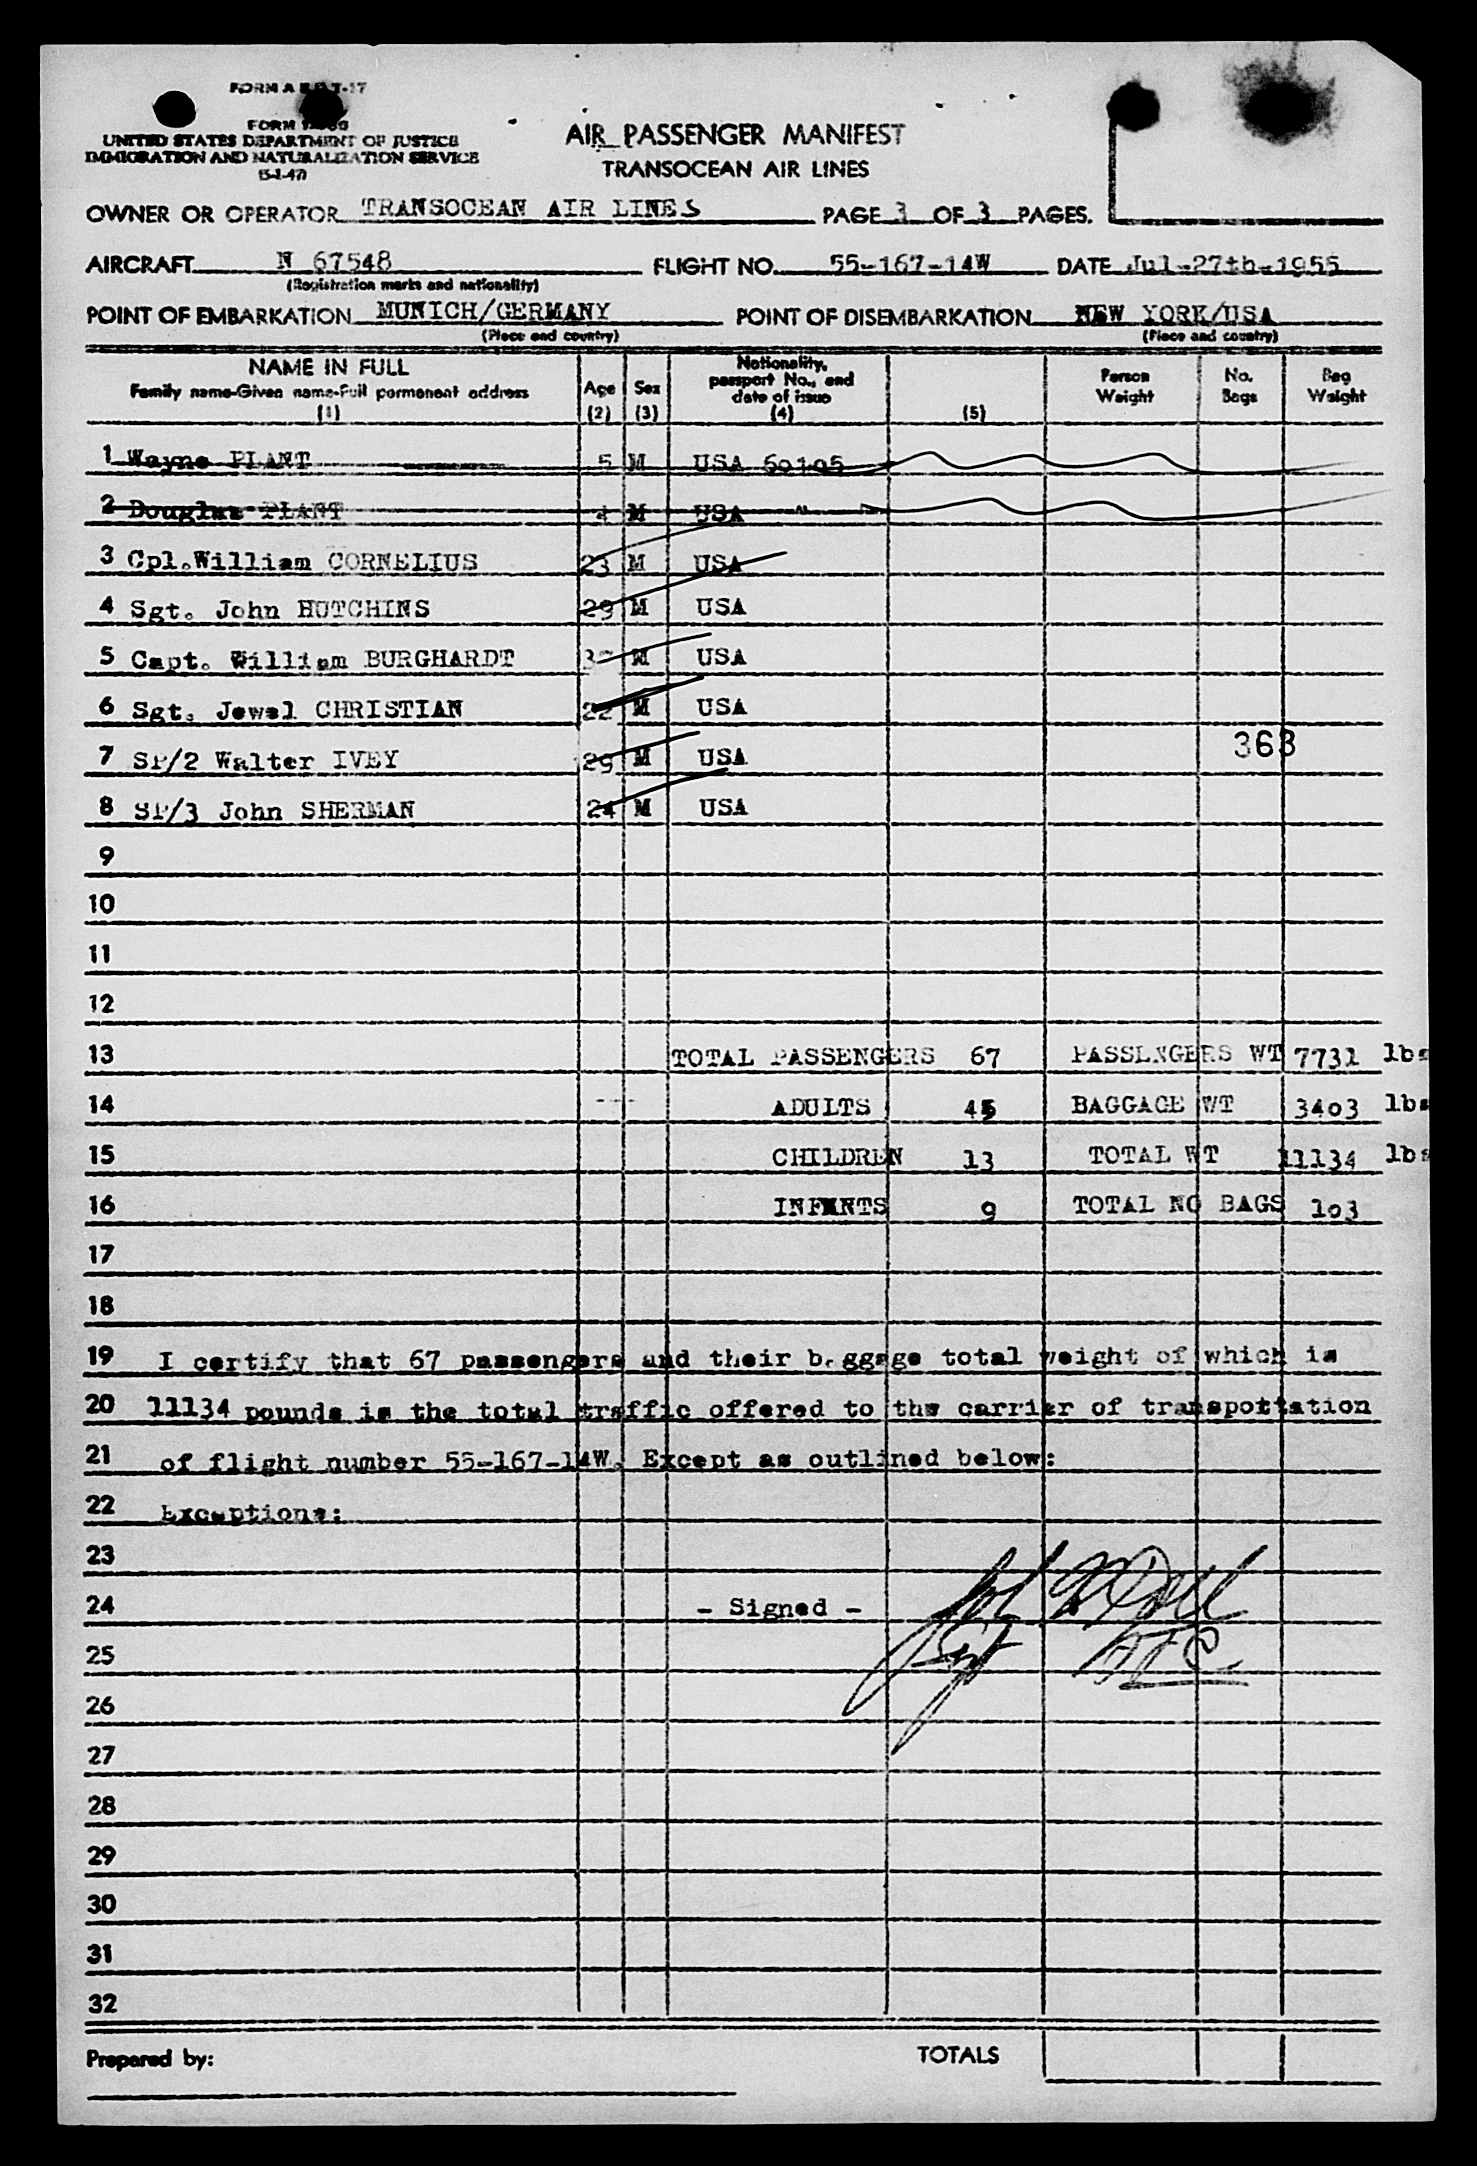 UNITED STATES DEPARTMENT OF JUSTICE
IMMIGRATION AND NATURALIZATION SERVICE
(5-1-47)
AIR PASSENGER MANIFEST
TRANSOCEAN AIR LINES
OWNER OR OPERATOR TRANSOCEAN AIR LINES PAGE 3 OF 3 PAGES.
AIRCRAFT N 67548 FLIGHT NO. 55-167-14W DATE Jul-27th-1955
(Registration marks and nationality)
POINT OF EMBARKATION MUNICH/GERMANY POINT OF DISEMBARKATION NEW YORK/USA
(Place and country) (Place and country)
NAME IN FULL
Family name-Given name-Full permanent address
(1)
Age
(2)
Sex
(3)
Nationality,
passport No., and
date of issue
(4)
(5)
Person
Weight
No.
Bags
Bag
Weight
1 Wayne PLANT 5 M USA 60105
2 Douglas PLANT 4 M USA "
3 Cpl.William CORNELIUS 23 M USA
4 Sgt. John HUTCHINS 29 M USA
5 Capt. William BURGHARDT M USA
6 Sgt. Jewel CHRISTIAN 22 M USA
7 SP/2 Walter IVEY 29 M USA
363
8 SP/3 John SHERMAN 24 M USA
9
10
11
12
13 TOTAL PASSENGERS 67 PASSENGERS WT 7731 lbs
14 ADULTS 45 BAGGAGE WT 3403 lbs
15 CHILDREN 13 TOTAL WT 11134 lbs
16 INFANTS 9 TOTAL NO BAGS 103
17
18
19 I certify that 67 passengers and their baggage total weight of which is
20 11134 pounds is the total traffic offered to the carrier of transpottation
21 of flight number 55-167-14W. Except as outlined below:
22 Exceptions:
23
24 - Signed -
25 Sgt
26
27
28
29
30
31
32
Prepared by: TOTALS